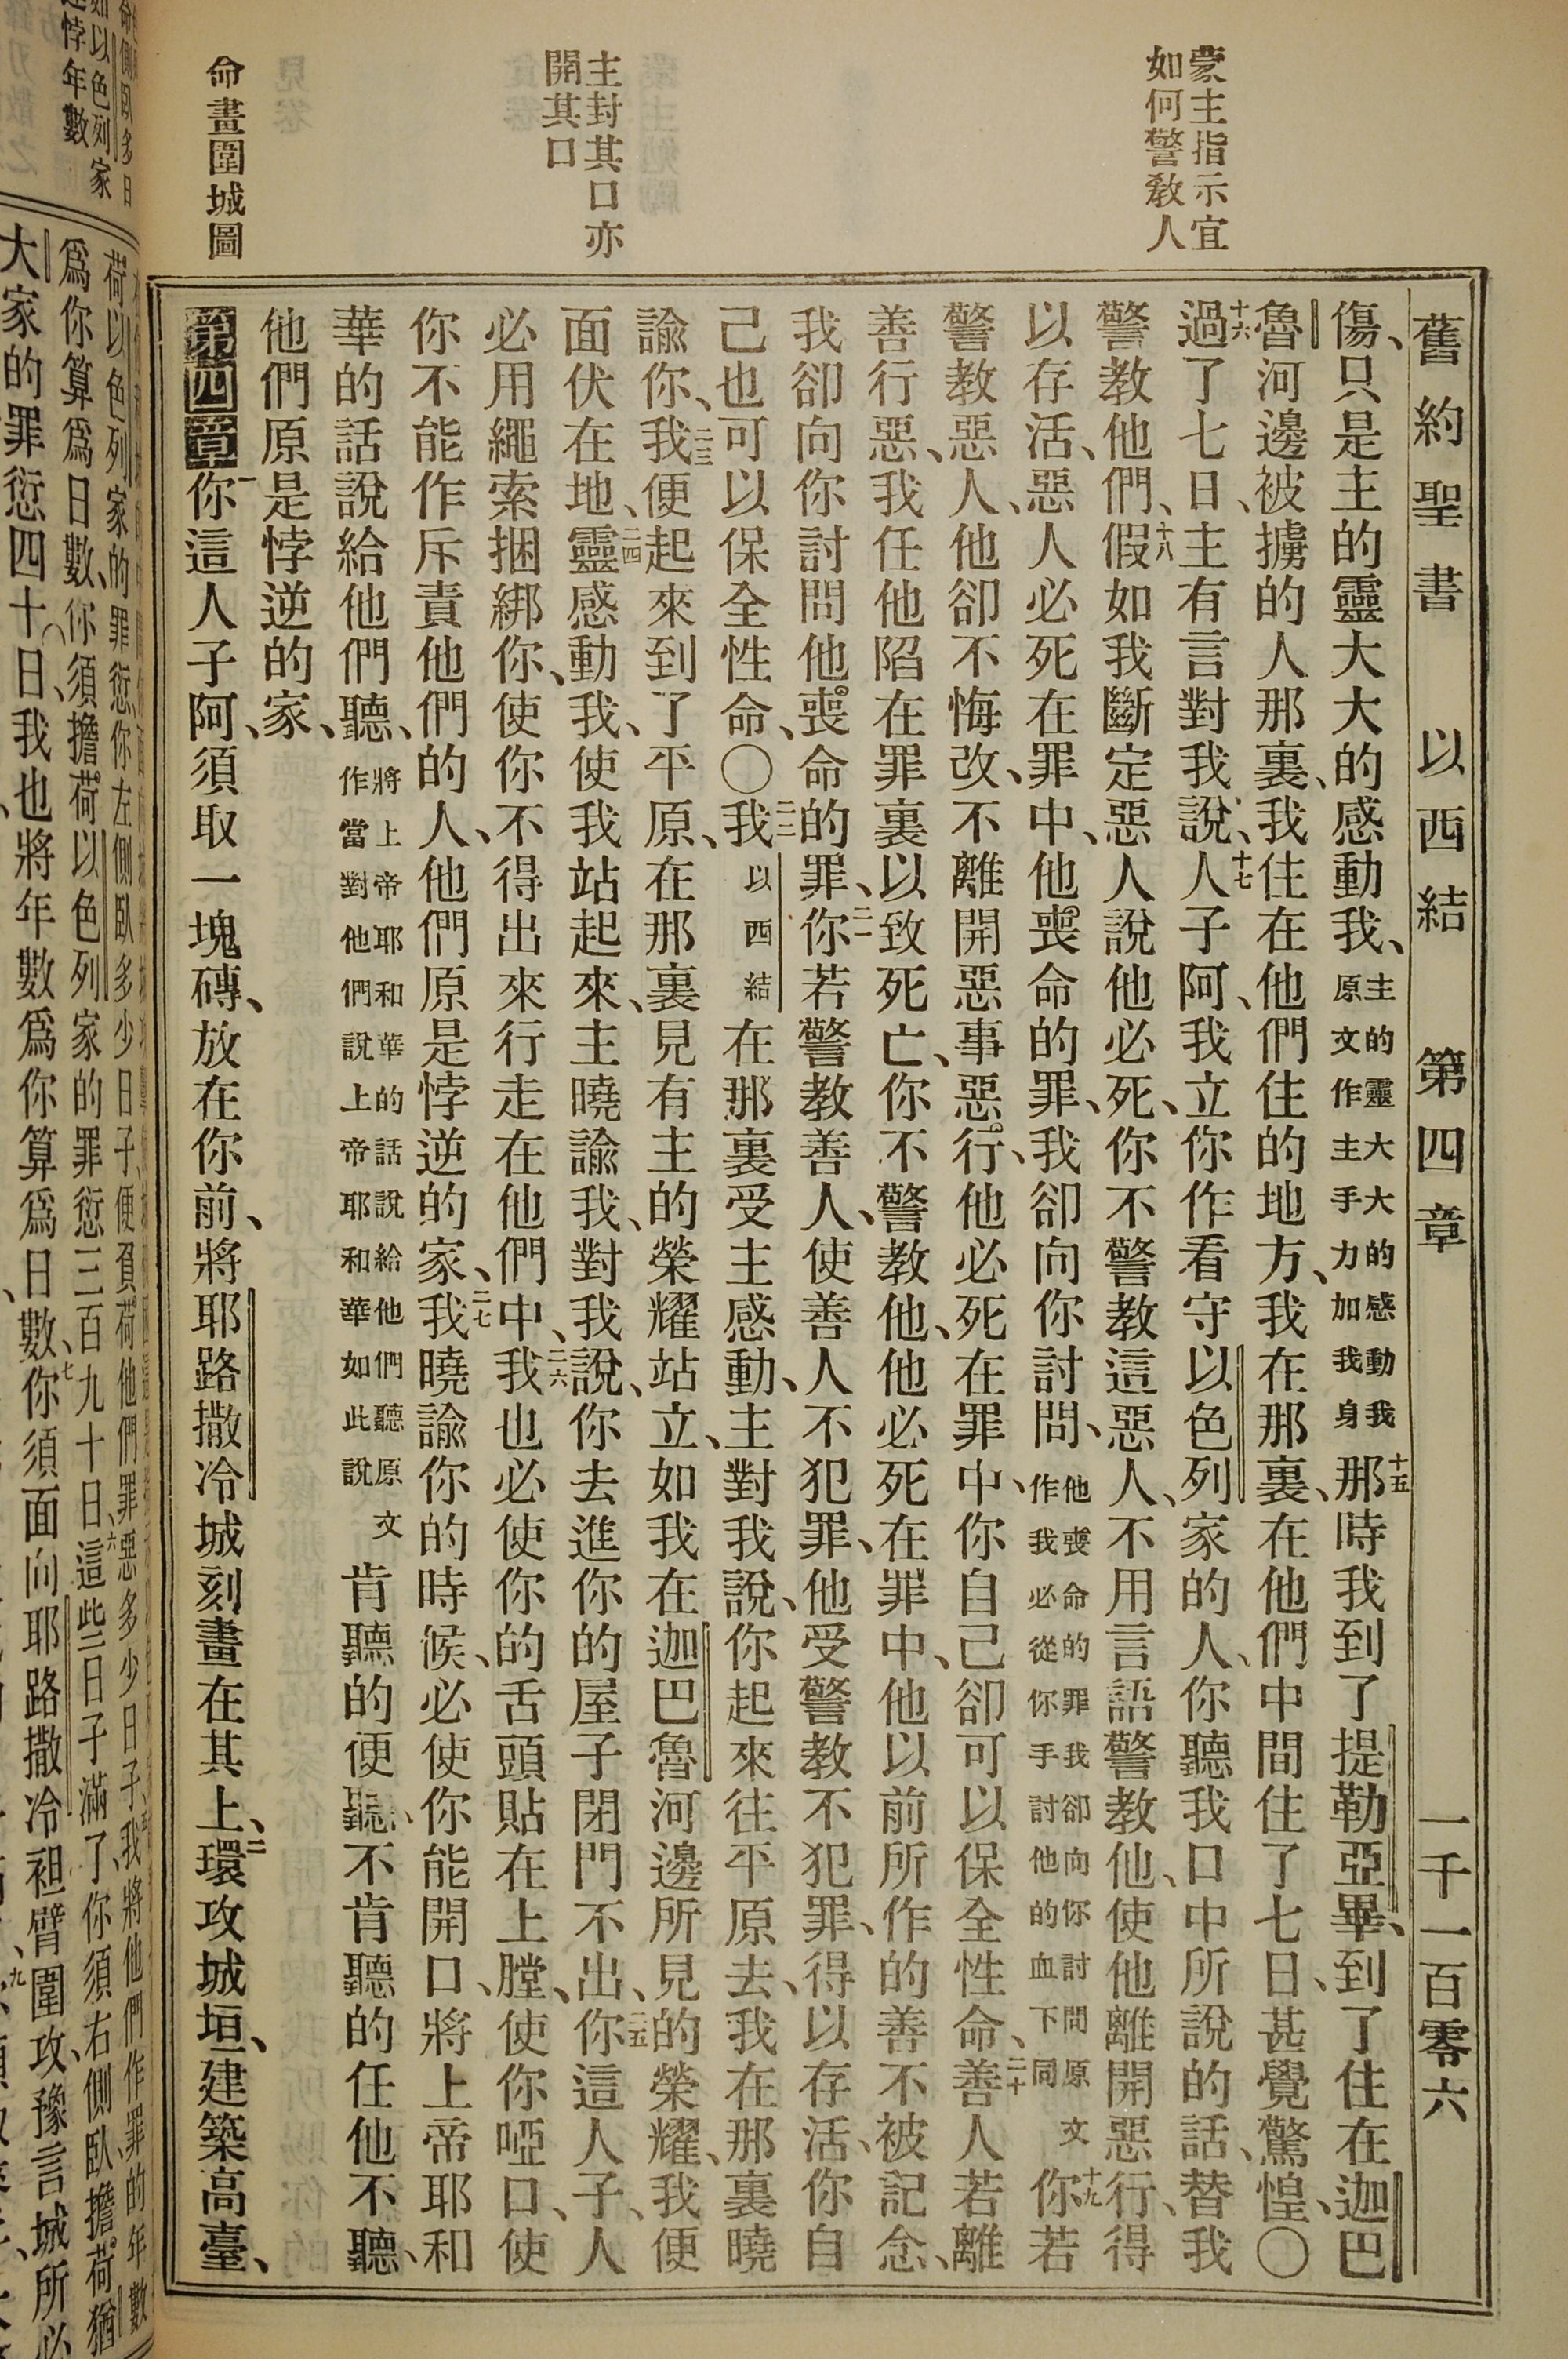 蒙主指示宜
如何警教人
主封其口亦
開其口
命畫圍城圖
舊約聖書 以西結 第四章 一千一百零六
傷、只是主的靈大大的感動我、主的靈大大的感動我原文作主手力加我身十五那時我到了提勒亞畢、到了住在迦巴
魯河邊被擄的人那裏、我住在他們住的地方、我在那裏、在他們中間住了七日、甚覺驚惶、〇
十六過了七日、主有言對我說、十七人子阿、我立你作看守以色列家的人、你聽我口中所說的話、替我
警教他們、十八假如我斷定惡人說他必死、你不警教這惡人、不用言語警教他、使他離開惡行、得
以存活、惡人必死在罪中、他喪命的罪、我卻向你討問、他喪命的罪我卻向你討問原文作我必從你手討他的血下同十九你若
警教惡人、他卻不悔改、不離開惡事惡行、他必死在罪中、你自己卻可以保全性命、二十善人若離
善行惡、我任他陷在罪裏以致死亡、你不警教他、他必死在罪中、他以前所作的善不被記念、
我卻向你討問他喪命的罪、二一你若警教善人、使善人不犯罪、他受警教不犯罪、得以存活、你自
己也可以保全性命、〇二二我以西結在那裏受主感動、主對我說、你起來往平原去、我在那裏曉
諭你、二三我便起來到了平原、在那裏見有主的榮耀站立、如我在迦巴魯河邊所見的榮耀、我便
面伏在地、二四靈感動我、使我站起來、主曉諭我、對我說、你去進你的屋子閉門不出、二五你這人子、人
必用繩索捆綁你、使你不得出來行走在他們中、二六我也必使你的舌頭貼在上膛、使你啞口、使
你不能作斥責他們的人、他們原是悖逆的家、二七我曉諭你的時候、必使你能開口、將上帝耶和
華的話說給他們聽、將上帝耶和華的話說給他們聽原文作當對他們說上帝耶和華如此說肯聽的便聽、不肯聽的任他不聽、
他們原是悖逆的家、
第四章一你這人子阿、須取一塊磚、放在你前、將耶路撒冷城刻畫在其上、二環攻城垣、建築高臺、
如以色列家
悖年數
荷以色列家的罪愆、你左側臥多少日子、便負荷他們罪惡多少日子、我將他們作罪的年數
爲你算爲日數、你須擔荷以色列家的罪愆三百九十日、六這些日子滿了、你須右側臥、擔荷猶
大家的罪愆四十日、我也將年數爲你算爲日數、七你須面向耶路撒冷、袒臂圍攻、豫言城所必